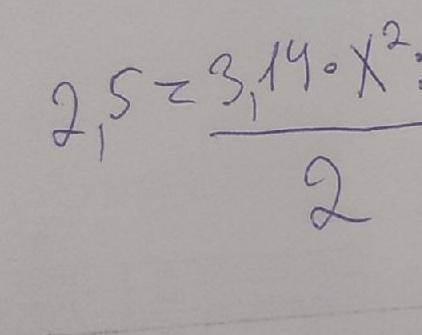 2,5 = 3,14 · x² :
2